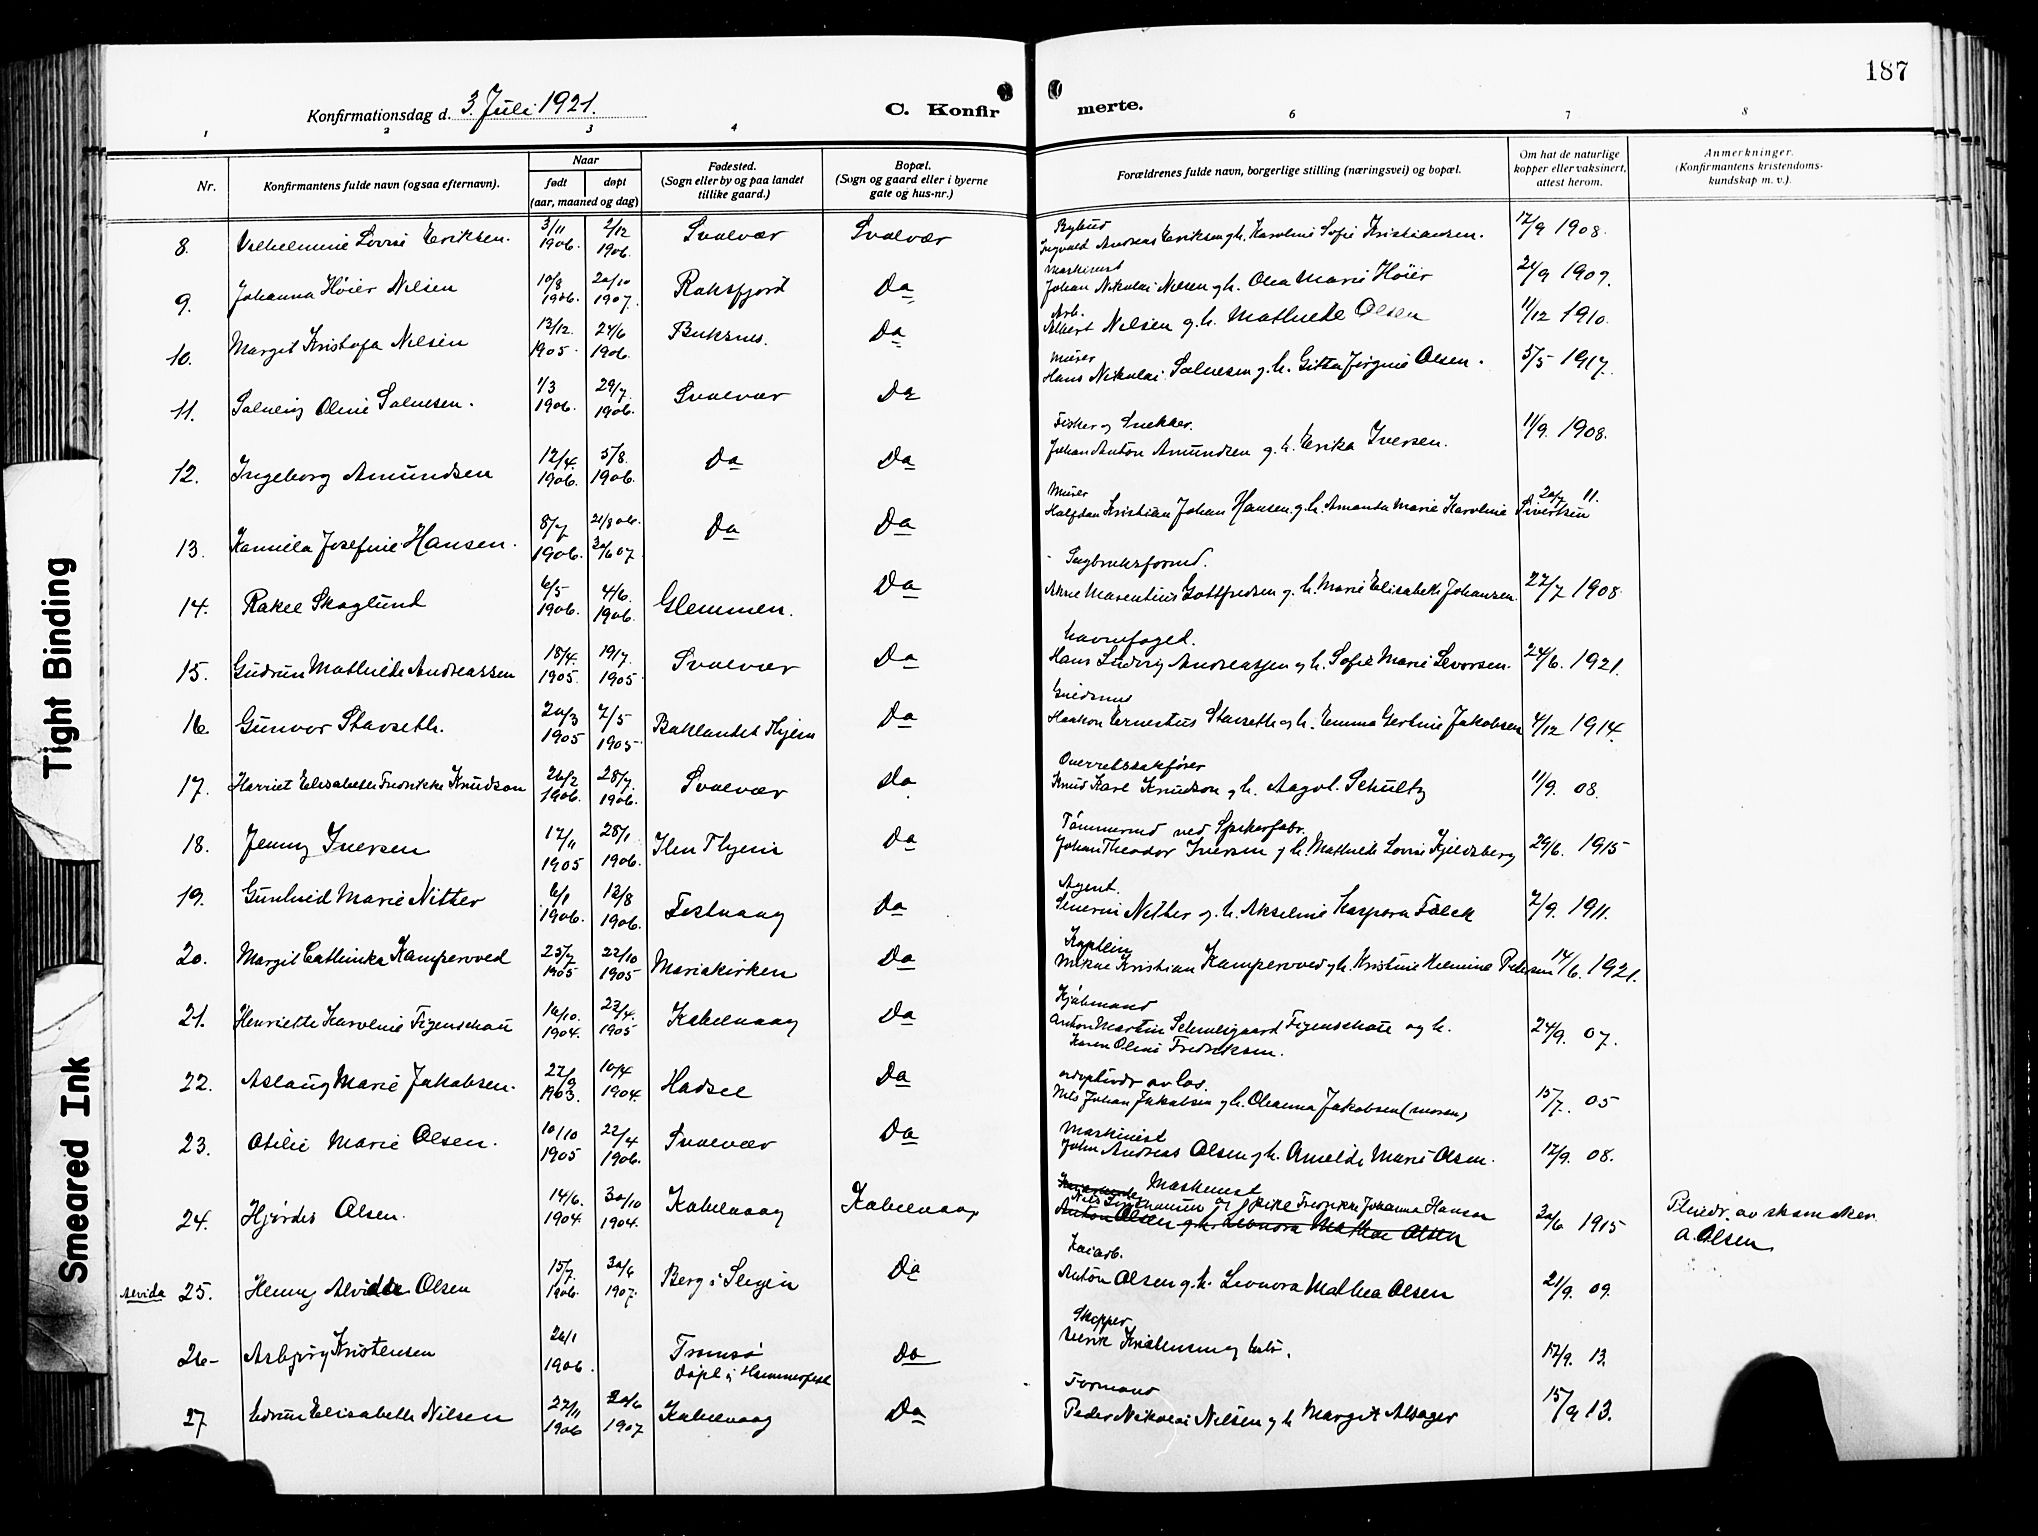 187
Konfirmationsdag d. 3. Juli 1921.
C. Konfirmerte.
1 2 3 4 6 7 8
Nr.
Konfirmantens fulde navn (ogsaa efternavn).
Naar
født
døpt
(aar, maaned og dag)
Fødested.
(Sogn eller by og paa landet
tillike gaard.)
Bopæl.
(Sogn og gaard eller i byerne
gate og hus-nr.)
Forældrenes fulde navn, borgerlige stilling (næringsvei) og bopæl.
Om hat de naturlige
kopper eller vaksinert,
attest herom.
Anmerkninger.
(Konfirmantens kristendoms-
kundskap m. v.).
8. Vilhelmine Lovise Eriksen. 3/11 1906. 2/12 1906. Svolvær Svolvær
Bybud
Ingvald Andreas Eriksen g.h. Karoline Sofie Kristiansen. 12/9 1908.
9. Johanna Høier Nilsen 10/8 1906. 20/10 1907. Raksfjord Da
Maskinist
Johan Nikolai Nilsen g.h. Olea Marie Høier 21/9 1907.
10. Margit Kristofa Nilsen 13/12. 1905. 24/6 1906. Buksnes. Da
Arb.
Albert Nilsen g.h. Mathilde Olsen 11/12 1910.
11. Solveig Oline Solvesen. 1/3 1906. 29/7. 1906. Svolvær Da
Murer
Hans Nikolai Solvesen g.h. Gitta Jørgine Olsen. 5/5 1917.
12. Ingeborg Amundsen 12/4. 1906. 5/8. 1906. Da Da
Fisker og Snekker.
Johan Anton Amundsen g.h. Erika Iversen. 11/9. 1908.
13. Kamilla Josefine Hansen. 8/7 1906. 21/8 06. 30/6 07. Da Da
Murer
Halfdan Kristian Johan Hansen. g.h. Amanda Marie Karoline Sivertsen 20/7 11.
14. Rakel Skoglund 6/5 1906. 4/6. 1906. Glemmen. Da
Sagbruksformd.
Arne Marentius Gottfredsen g.h. Marie Elisabeth Johansen. 22/7 1908.
15. Gudrun Mathilde Andreassen 18/4. 1905. 19/7. 1905. Svolvær Da
Havnefoged.
Hans Ludvig Andreassen g.h. Sofie Marie Sevorsen. 24/6. 1921.
16. Gunvor Stavseth. 20/3 1905 7/5 1905. Baklandet Thjem Da
Haakon Ernestus Stavseth g.h. Emma Gertine Jakobsen 4/12 1914.
17. Harriet Elisabeth Fredrikke Knudson 26/2 1906. 28/7. 1906. Svolvær Da
Overretssakfører
Knud Karl Knudson g.h. Aagot. Schultz 11/9. 08.
18. Jenny Iversen 17/11 1905 28/1 1906. Ilen Thjem Da
Tømmermd ved Spikerfabr.
Johan Theodor Iversen g.h. Mathilde Lovise Kjeldsberg 29/6. 1915
19. Gunhild Marie Nitter 6/1 1906. 12/8 1906. Festvaag Da
Agent.
Severin Nitter g.h. Akseline Kaspara Falck 7/9. 1911.
20. Margit Cathinka Kamperoved 25/7 1905 22/10 1905 Mariakirken Da
Kaptein
Mikal Kristian Kamperoved g.h. Kristine Helmine Pedersen 14/6. 1921.
21. Henriette Karoline Figenschau 16/10. 1904. 23/4. 1905 Kabelvaag Da
Kjøbmand
Anton Martin Schweigaard Figenschau og h.
Karen Oline Fredriksen. 24/9. 07.
22. Aslaug Marie Jakobsen. 27/9 1903. 10/4 1904. Hadsel Da
adoptivdr av Los.
Nils Johan Jakobsen g.h. Oleanna Jakobsen (moren) 15/7. 05
23. Otilie Marie Olsen. 10/10 1905 22/4 1906. Svolvær Da
Maskinist
John Andreas Olsen g.h. Amelde Marie Olsen. 12/9. 08.
24. Hjørdis Olsen. 14/6. 1904. 30/10 1904. Kabelvaag Kabelvaag
Maskinist
Fredrikke Johanna Hansen
Anton Olsen g.h. Leonora Mathea Olsen 30/6 1915 Pleiedr. av skomaker
A. Olsen
Alvida 25. Henny Alvida Olsen 15/7. 1906. 30/6 1907. Berg i Senjen Da
Kaiarb.
Anton Olsen g.h. Leonora Mathea Olsen 21/9. 09.
26. Asbjørg Kristensen 26/1 1906. Tromsø
Døpt i Hammerfest Da
Skipper 17/9. 13.
27 Gudrun Elisabeth Nilsen 22/11 1906 30/6 1907 Kabelvaag Da
Formand
Peder Nikolai Nilsen g.h. Margit Alsager 15/9 13.
Tight Binding
Smeared Ink